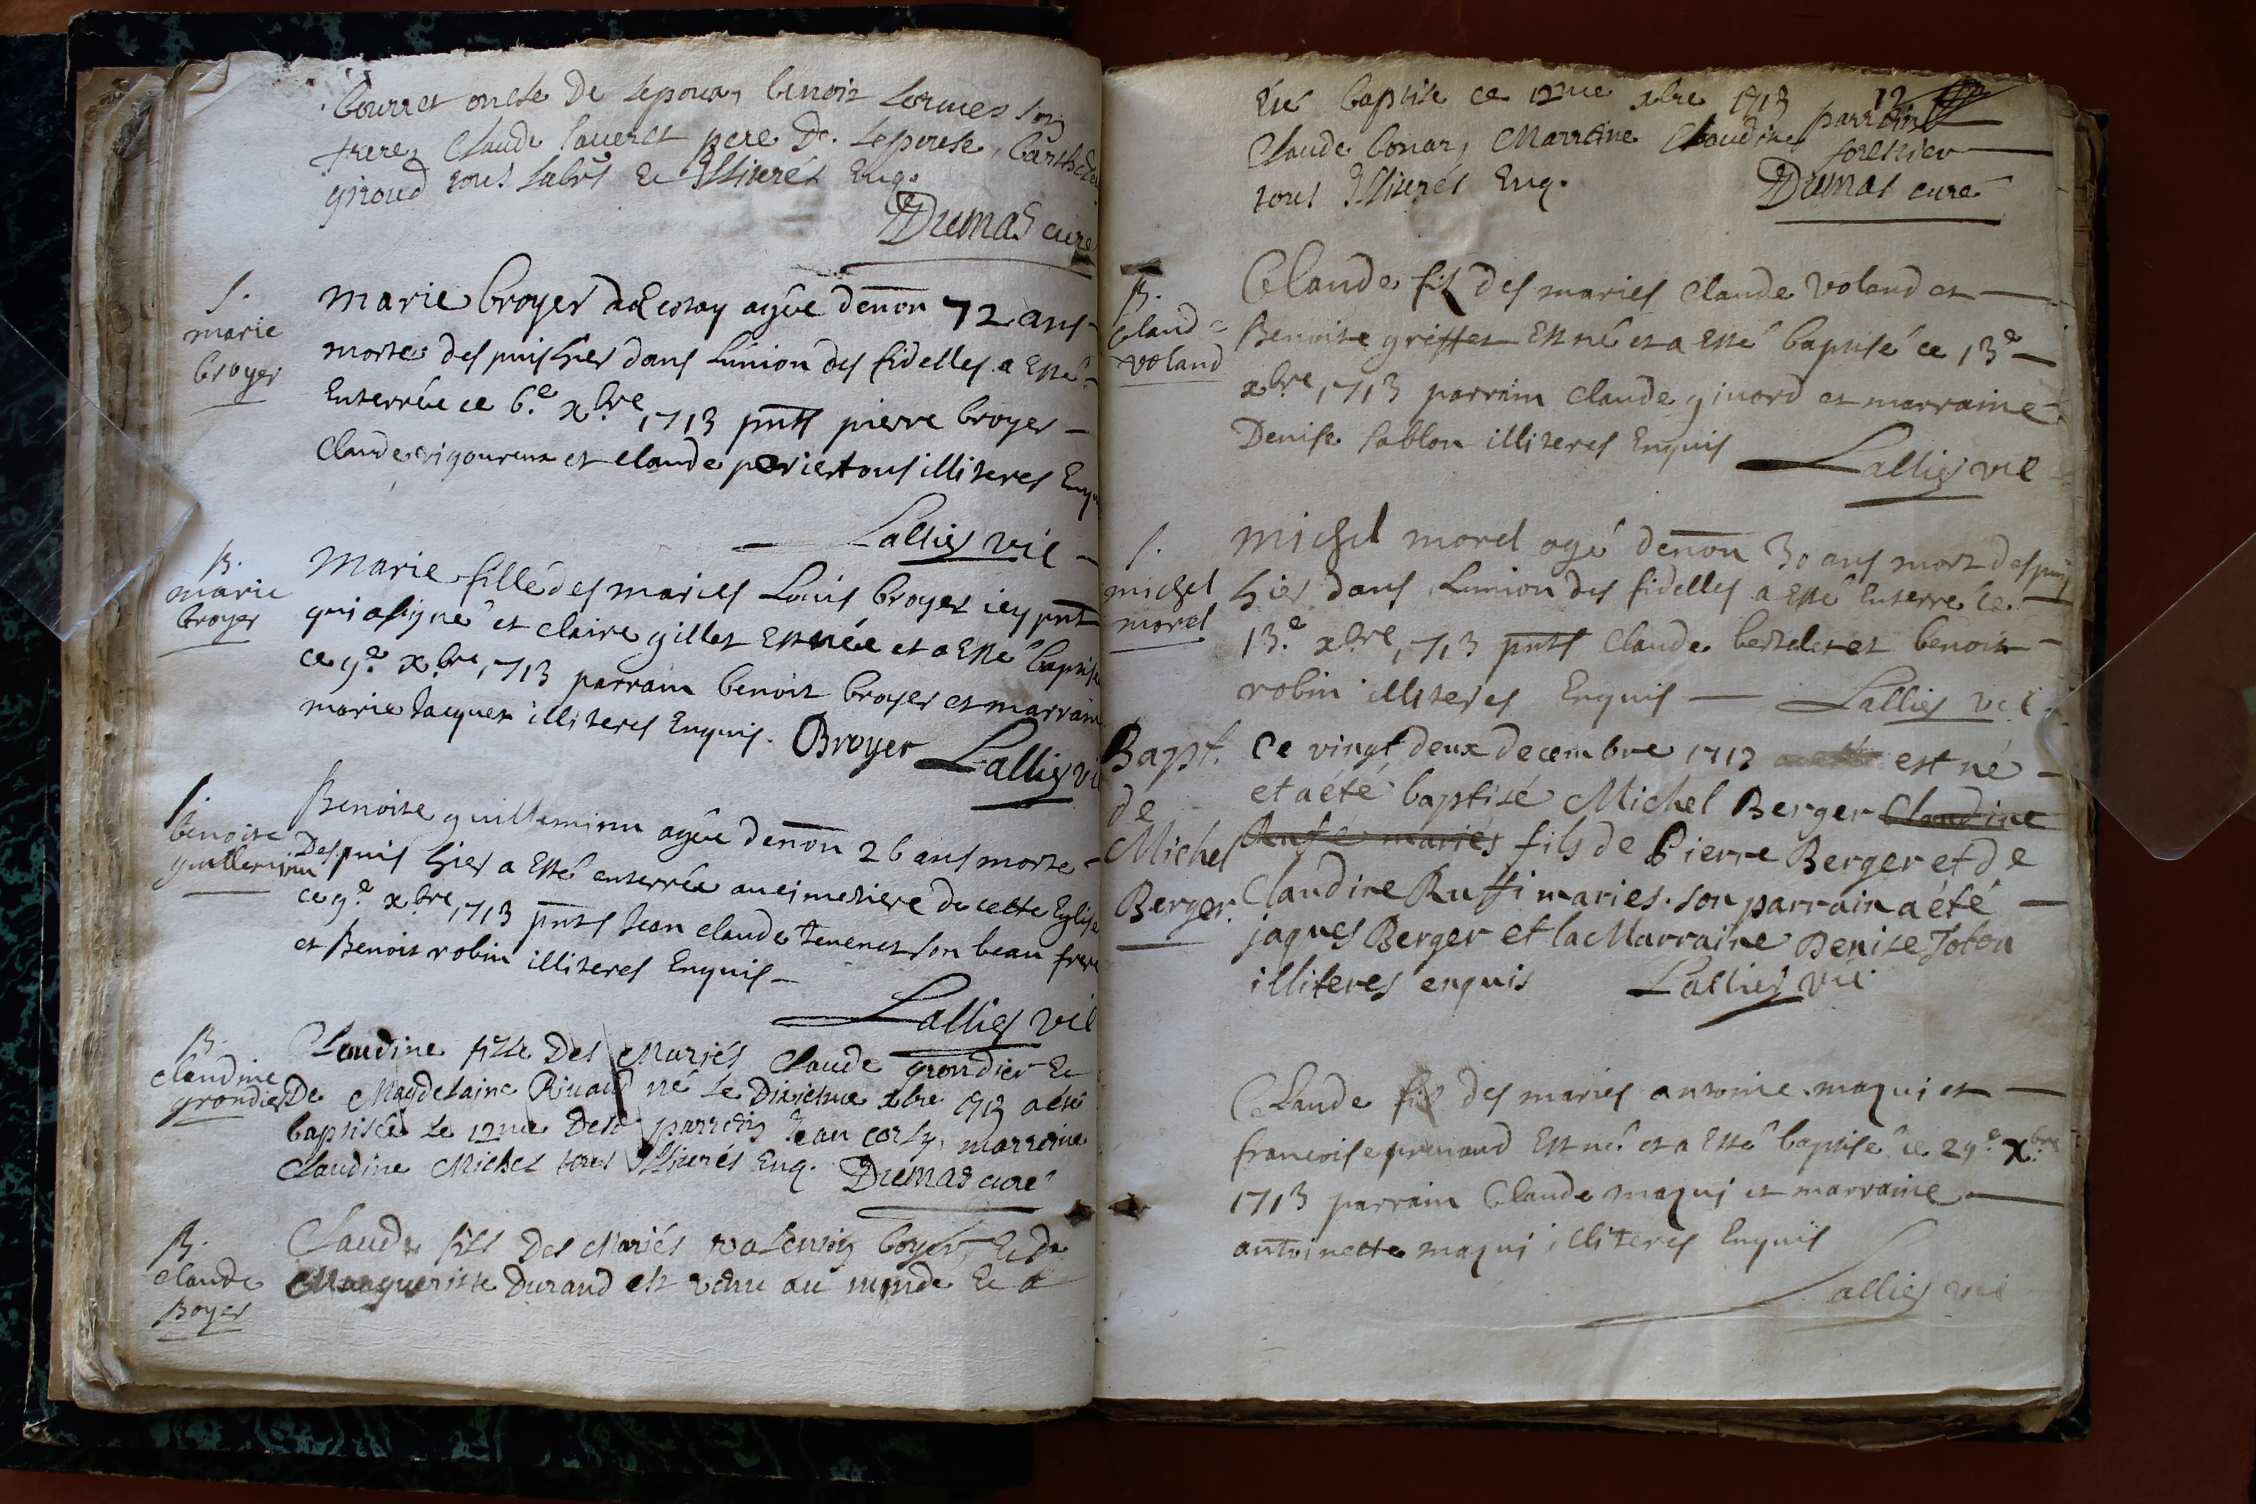 bourret oncle De lepoux, benoit lornes son
frere, Claude laveret pere De lepouse, barthelé
giroud tous labrs et Illiterés Enq.
Dumas curé
S.
marie
broyer
Marie broyer agée denon 72 ans
morte des puis hier dans Lunion des fidelles a Esté
Enterrée ce 6e xbre 1713 pnts pierre broyer
Claude vigoureux et claude perier tous illiteres Enq
Lallier vic
B.
marie
broyer
Marie fille des maries Louis broyer icy pnt
qui a signé et claire gillet Est née et a Esté baptisé
ce 9e xbre 1713 parrain benoit broyer et marraine
marie Jacquet illiteres Enquis. Broyer Lallier vi
S.
benoite
guillerminn
Benoite guilleminn agée denon 26 ans morte
Despuis hier a Esté enterrée au cimetiere de cette Eglise
ce 9e xbre 1713 pnts Jean claude Tevenet son beau frere
et Benoit robin illiteres Enquis
Lallier vic
B.
claudine
grondier
Claudine fille Des Mariés Claude grondier Et
De Magdelaine Rivaud né le Dixiéme xbre 1713 a été
baptisée le 12me Dud parrein Jean corly, marreine
Claudine Michel tous Illiterés Enq. Dumas curé
B.
claude
Boyer
Claude fils Des Mariés valentin boyer, Et De
Margueritte Durand est venu au monde Et a
Eté baptisé ce 12me xbre 1713 parrein
12
Claude bonar, Marreine Claudine forenier
tous Illiterés Enq.
Dumas curé
B.
Claud=
voland
Claude fils des maries Claude voland et
Benoite griffet Est né et a Esté baptisé ce 13e
xbre 1713 parrain Claude ginord et marraine
Denise sablon illiteres Enquis
Lallier vic
S.
michel
morel
Michel morel agé denon 30 ans mort despuis
hier dans Lunion des fidelles a Esté Enterre le
13e xbre 1713 pnts Claude bertelet et benoit
robin illiteres Enquis Lallier vic
Bapt.
de
Michel
Berger.
Ce vingt deux decembre 1713 est né
et a été baptisé Michel Berger Claudine
Ruffé mariés fils de Pierre Berger et de
Claudine Ruffi maries. son parrain a été
jaques Berger et la Marraine Denise Joton
illiteres enquis Lallier vic
Claude fils des maries antoine maqui et
francoise prenaud Est né et a Esté baptisé ce 29e xbre
1713 parrain Claude maqui et marraine
antoinette maqui illiteres Enquis
Lallier vic